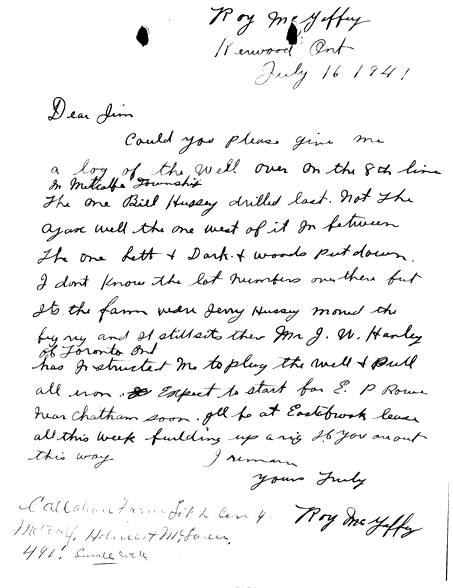 Roy McGaffey
Kerwood Ont
July 16 1941
Dear Jim
Could you please give me
a log of the well over on the 8th line
In Metcalfe Township
The one Bill Hussey drilled last. Not the
well the one west of it In between
the one Lett & Dark & woods put down.
I dont know the lot numbers over there but
Its the farm were Jerry Hussy moved the
big rig and It still sits there Mr J. W. Hanley
of Toronto Ont
has Instructed me to plug the well & Pull
all iron. Expect to start for E. P Rowe
near Chatham soon. Ill be at Eastbrook lease
all this week building up a rig If you are out
this way I remain
yours Truly
Roy McGaffey
Callahan Farm Lot 2 Con 4
Metcalf,
491!